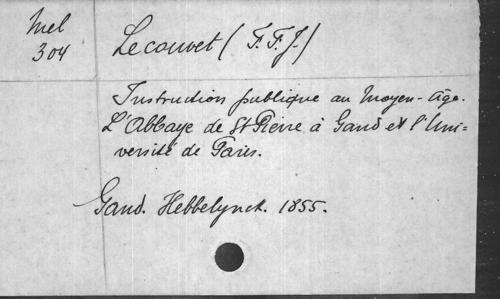 Mel
304
Lecouvet (F.F.J.)
Instruction publique au Moyen-âge.
L'Abbaye de St Pierre à Gand et l'Uni=
versité de Paris.
Gand. Hebbelynck. 1855.